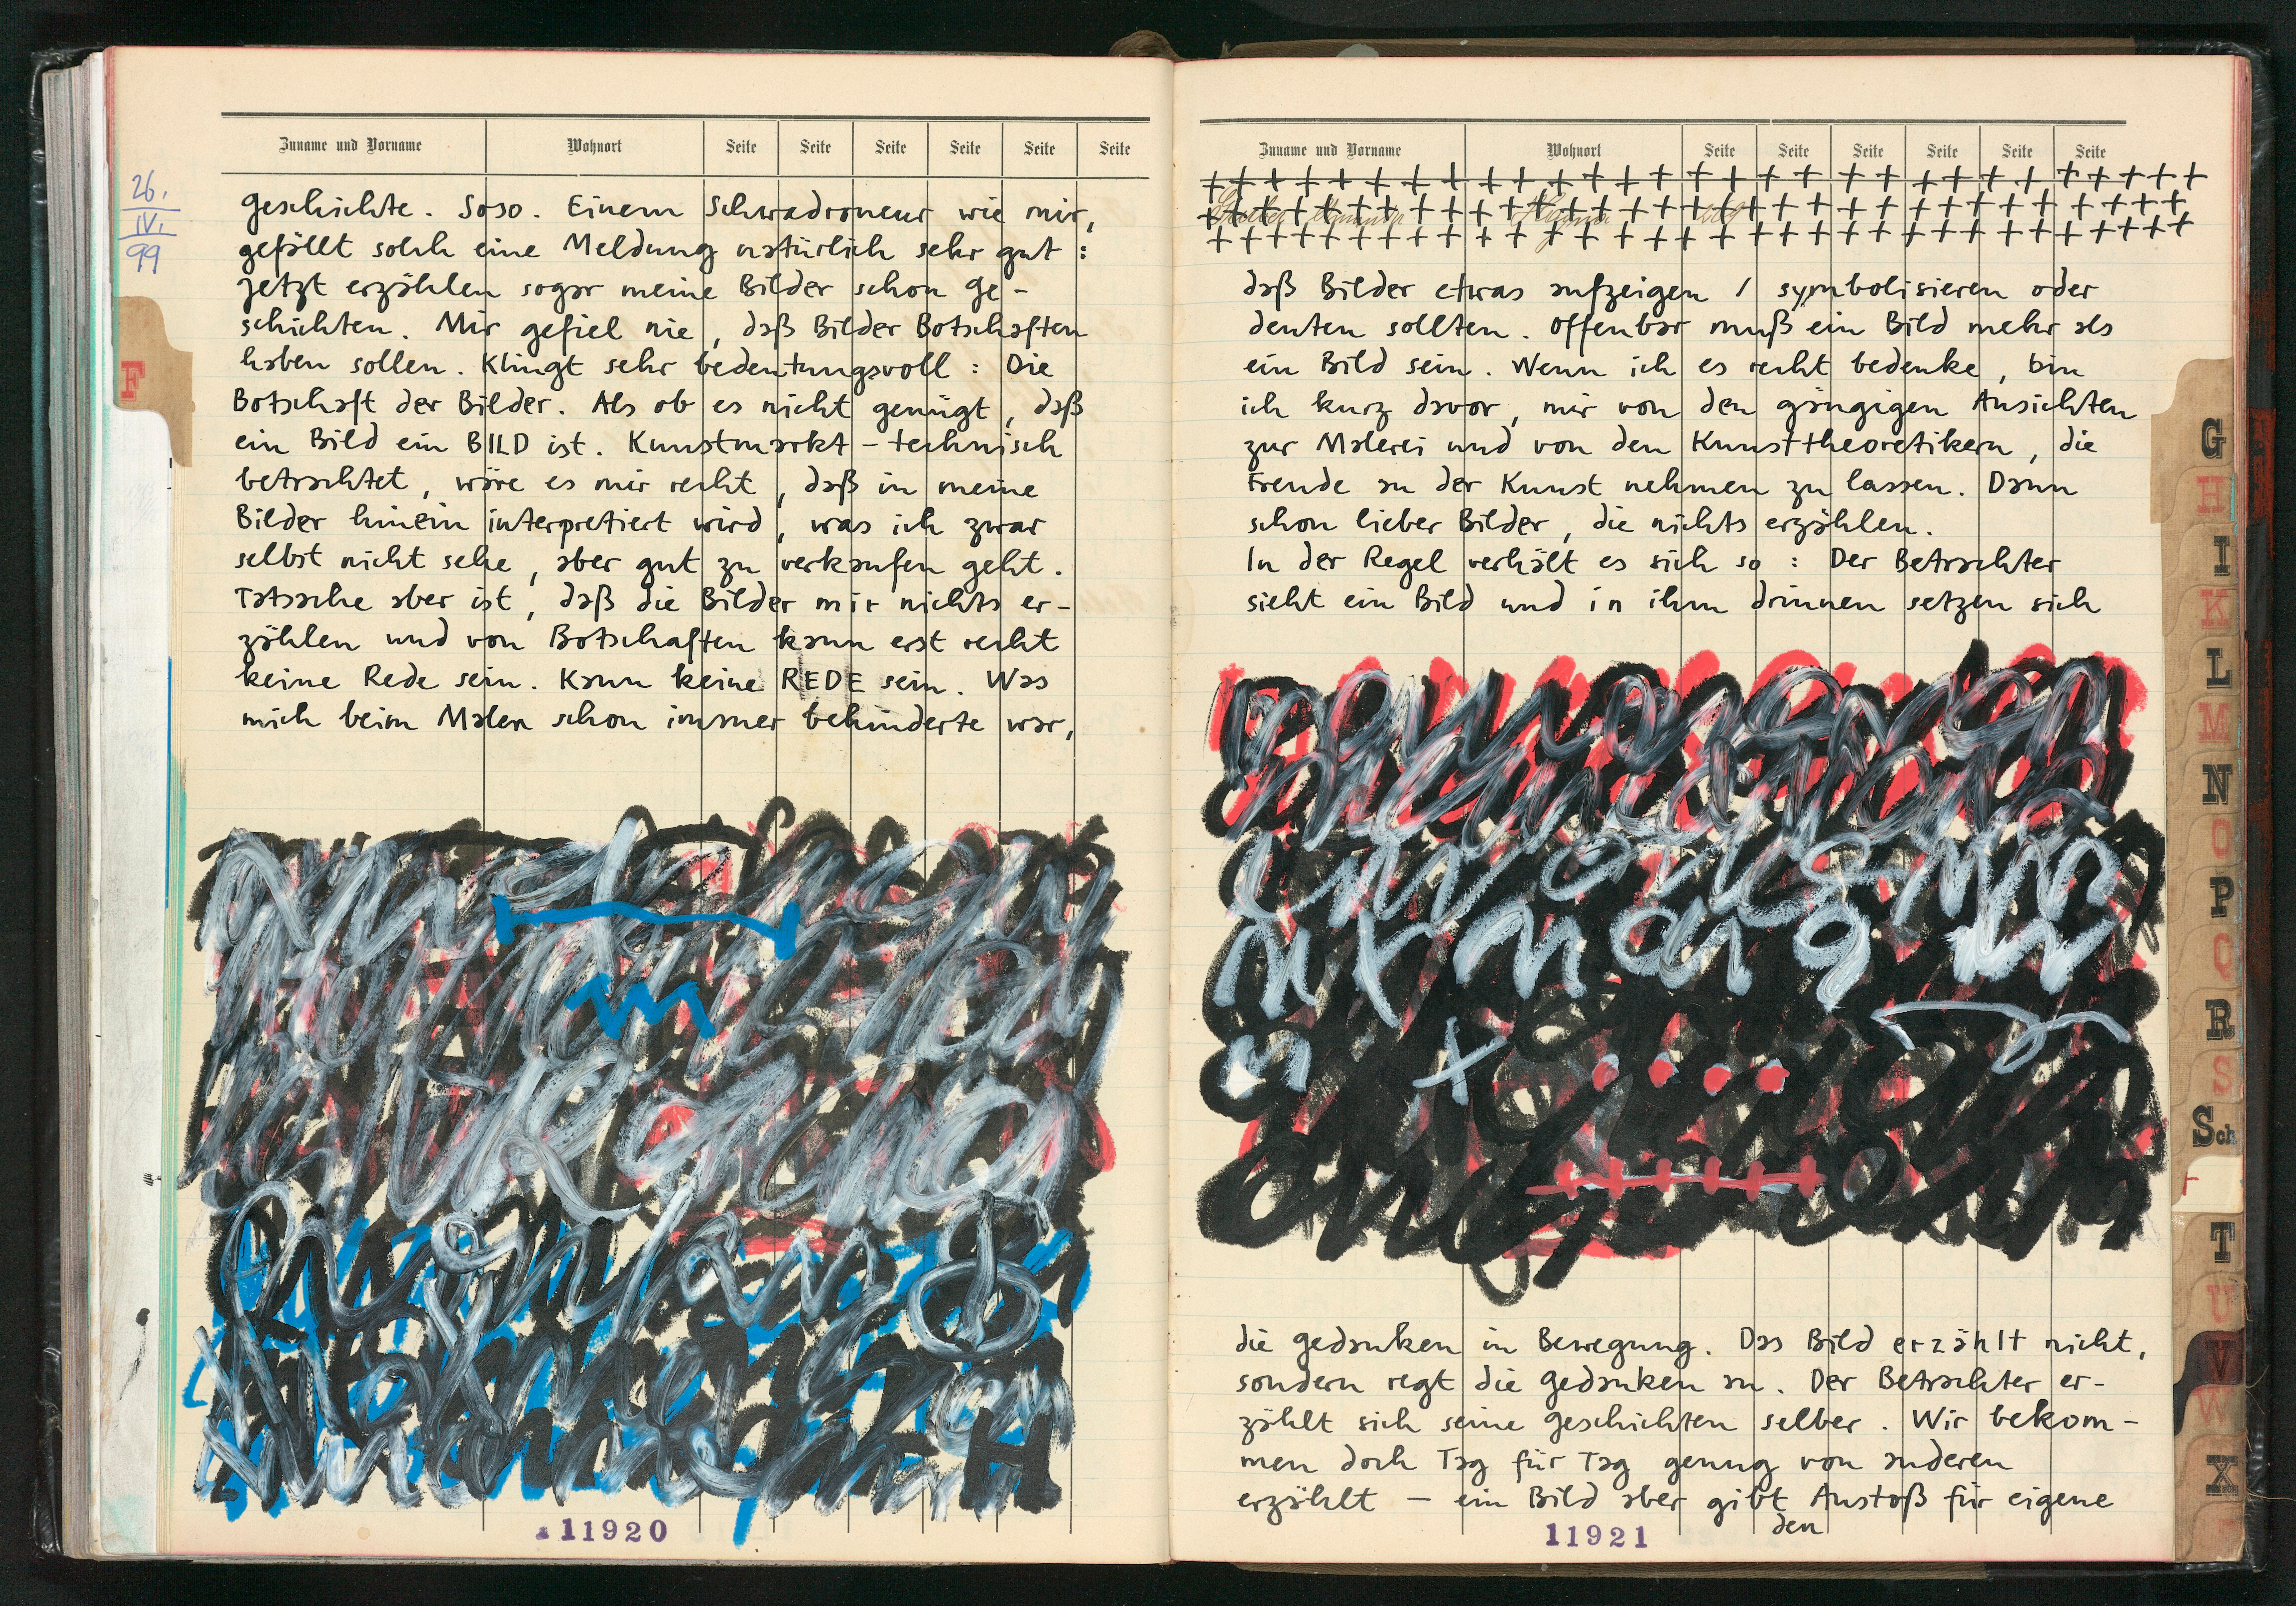 Zuname und Vorname Wohnort Seite Seite Seite Seite Seite Seite
26.
IV.
99
Geschichte. Soso. Einem Schwadroneur wie mir,
gefällt solch eine Meldung natürlich sehr gut :
Jetzt erzählen sogar meine Bilder schon Ge-
schichten. Mir gefiel nie, daß Bilder Botschaften
haben sollen. Klingt sehr bedeutungsvoll : Die
Botschaft der Bilder. Als ob es nicht genügt, daß
ein Bild ein BILD ist. Kunstmarkt-technisch
betrachtet, wäre es mir recht, daß in meine
Bilder hinein interpretiert wird, was ich zwar
selbst nicht sehe, aber gut zu verkaufen geht.
Tatsache aber ist, daß die Bilder mir nichts er-
zählen und von Botschaften kann erst recht
keine Rede sein. Kann keine REDE sein. Was
mich beim Malen schon immer behinderte war,
11920
F
Zuname und Vorname Wohnort Seite Seite Seite Seite Seite Seite
daß Bilder etwas aufzeigen / symbolisieren oder
deuten sollten. Offenbar muß ein Bild mehr als
ein Bild sein. Wenn ich es recht bedenke, bin
ich kurz davor, mir von den gängigen Ansichten
zur Malerei und von den Kunsttheoretikern, die
Freude an der Kunst nehmen zu lassen. Dann
schon lieber Bilder, die nichts erzählen.
In der Regel verhält es sich so : Der Betrachter
sieht ein Bild und in ihm drinnen setzen sich
die Gedanken in Bewegung. Das Bild erzählt nicht,
sondern regt die Gedanken an. Der Betrachter er-
zählt sich seine Geschichten selber. Wir bekom-
men doch Tag für Tag genug von anderen
erzählt – ein Bild aber gibt Anstoß für eigene
den
11921
G
H
I
K
L
M
N
O
P
Q
R
S
Sch
T
U
V
W
X